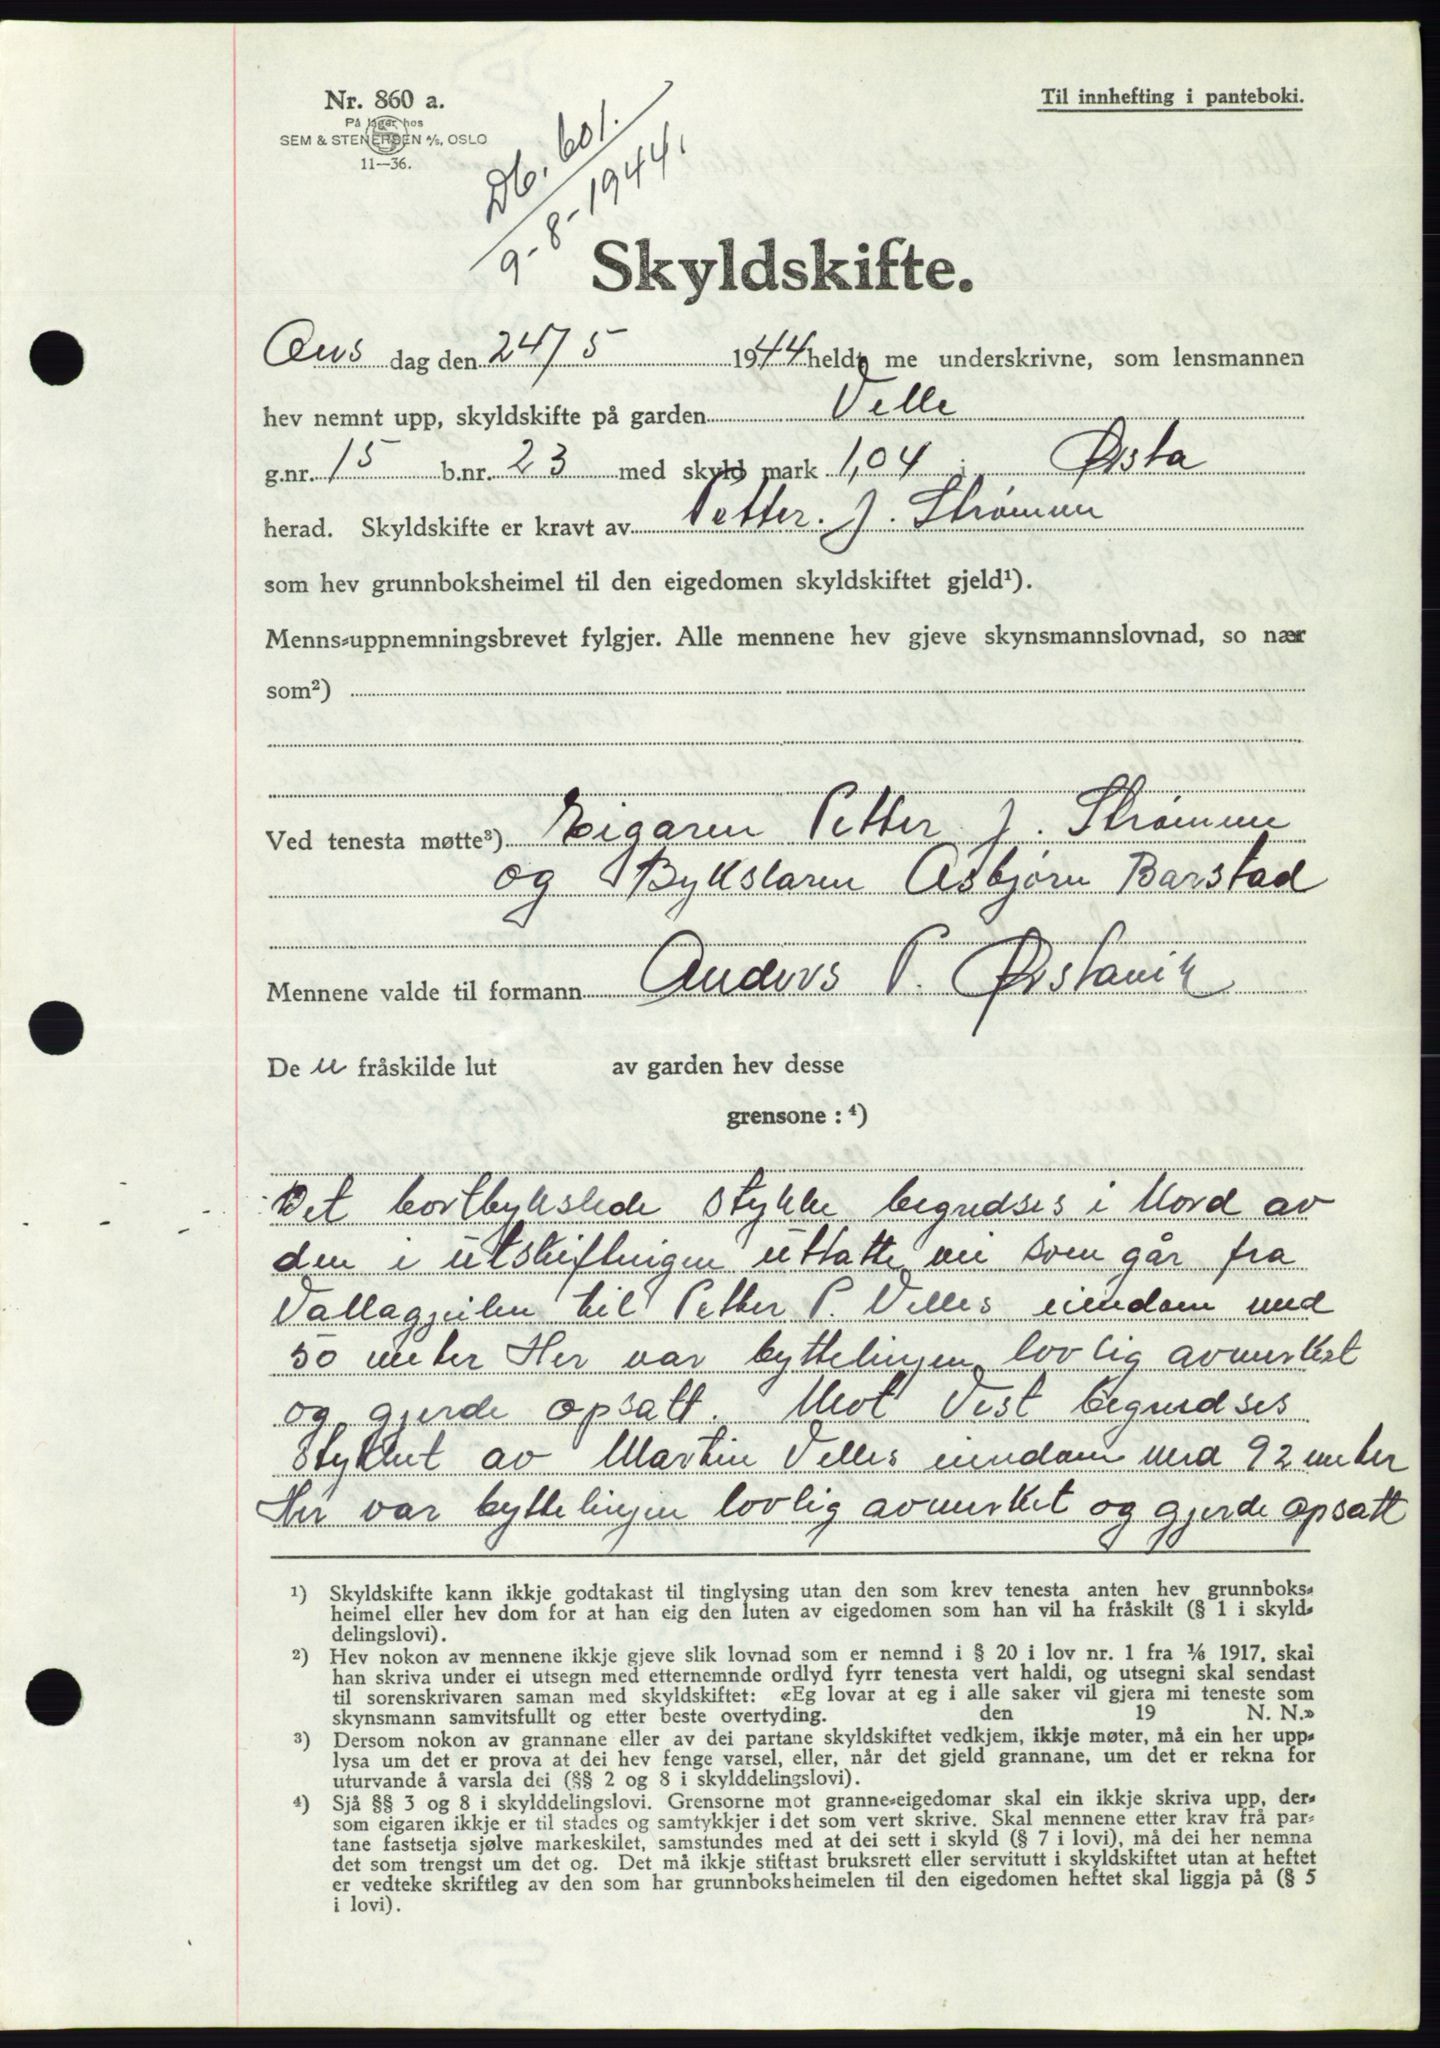 Nr. 860 a.
På lager hos
SEM & STENERSEN A/S, OSLO
11—36.
Til innhefting i panteboki.
Db. 601.
9-8-1944.
Skyldskifte.
Ons dag den 24/5 1944 heldt me underskrivne, som lensmannen
hev nemnt upp, skyldskifte på garden Velle
g.nr. 15 b.nr. 23 med skyld mark 1,04 i Ørsta
herad. Skyldskifte er kravt av Petter. J. Strømme
som hev grunnboksheimel til den eigedomen skyldskiftet gjeld¹).
Menns-uppnemningsbrevet fylgjer. Alle mennene hev gjeve skynsmannslovnad, so nær
som²)
Ved tenesta møtte³) Eigaren Petter J. Strømme
og Bykslaren Asbjørn Barstad
Mennene valde til formann Anders P. Ørstavik
De n fråskilde lut av garden hev desse
grensone : ⁴)
Det bortbykslede stykke begrndses i Nord av
den i utskiftnigen uttatte vei som går fra
Vallagjeilen til Petter P. Velles eiendom med
50 meter Her var byttelinjen lovlig avmerket
og gjerde opsatt. Mot Vest begrendses
stykket av Martin Velles eiendom med 92 meter
Her var byttelinjen lovlig avmerket og gjerde opsatt
¹) Skyldskifte kann ikkje godtakast til tinglysing utan den som krev tenesta anten hev grunnboks-
heimel eller hev dom for at han eig den luten av eigedomen som han vil ha fråskilt (§ 1 i skyld-
delingslovi).
²) Hev nokon av mennene ikkje gjeve slik lovnad som er nemnd i § 20 i lov nr. 1 fra 1/6 1917, skal
han skriva under ei utsegn med etternemnde ordlyd fyrr tenesta vert haldi, og utsegni skal sendast
til sorenskrivaren saman med skyldskiftet: «Eg lovar at eg i alle saker vil gjera mi teneste som
skynsmann samvitsfullt og etter beste overtyding. den 19 N. N.»
³) Dersom nokon av grannane eller av dei partane skyldskiftet vedkjem, ikkje møter, må ein her upp-
lysa um det er prova at dei hev fenge varsel, eller, når det gjeld grannane, um det er rekna for
uturvande å varsla dei (§§ 2 og 8 i skylddelingslovi).
⁴) Sjå §§ 3 og 8 i skylddelingslovi. Grensorne mot granne-eigedomar skal ein ikkje skriva upp, der-
som eigaren ikkje er til stades og samtykkjer i det som vert skrive. Skal mennene etter krav frå par-
tane fastsetja sjølve markeskilet, samstundes med at dei sett i skyld (§ 7 i lovi), må dei her nemna
det som trengst um det og. Det må ikkje stiftast bruksrett eller servitutt i skyldskiftet utan at heftet
er vedteke skriftleg av den som har grunnboksheimelen til den eigedomen heftet skal liggja på (§ 5
i lovi).